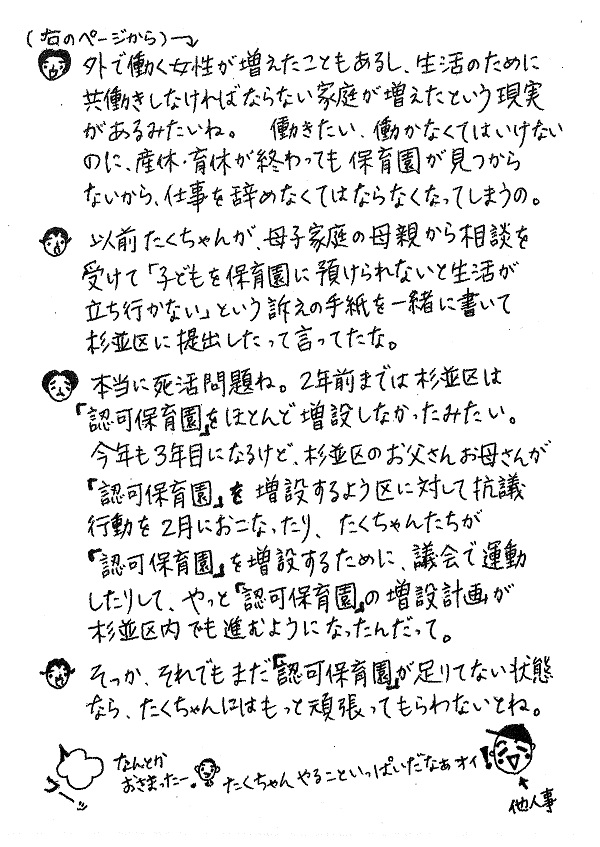 (右のページから)
外で働く女性が増えたこともあるし、生活のために
共働きしなければならない家庭が増えたという現実
があるみたいね。 働きたい、働かなくてはいけない
のに、産休・育休が終わっても保育園が見つから
ないから、仕事を辞めなくてはならなくなってしまうの。
以前たくちゃんが、母子家庭の母親から相談を
受けて「子どもを保育園に預けられないと生活が
立ち行かない」という訴えの手紙を一緒に書いて
杉並区に提出したって言ってたな。
本当に死活問題ね。2年前までは杉並区は
『認可保育園』をほとんど増設しなかったみたい。
今年も3年目になるけど、杉並区のお父さんお母さんが
『認可保育園』を増設するよう区に対して抗議
行動を2月におこなったり、たくちゃんたちが
『認可保育園』を増設するために、議会で運動
したりして、やっと『認可保育園』の増設計画が
杉並区内でも進むようになったんだって。
そっか、それでもまだ『認可保育園』が足りてない状態
なら、たくちゃんにはもっと頑張ってもらわないとね。
なんとか
おさまったー。
フーッ
たくちゃんやることいっぱいだなぁオイ!
他人事